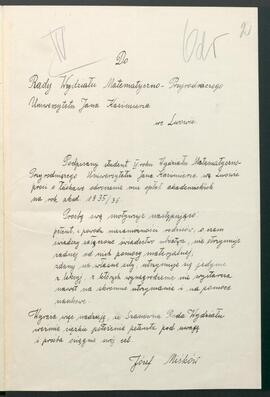 Do
Rady Wydziału Matematyczno-Przyrodniczego
Uniwersytetu Jana Kazimierza
we Lwowie
Podpisany student II roku Wydziału Matematyczno-
Przyrodniczego Uniwersytetu Jana Kazimierza, we Lwowie
prosi o łaskawe odroczenie mu opłat akademickich
na rok akad. 1935/36.
Prośbę swą motywuje następująco:
petent, z powodu niezamożności rodziców, o czem
świadczy załączone świadectwo ubóstwa, nie otrzymuje
żadnej od nich pomocy materjalnej,
zdany na własne siły, utrzymuje się jedynie
z lekcyj, z których wynagrodzenie nie wystarcza
nawet na skromne utrzymanie i na pomoce
naukowe.
Wyraża więc nadzieję, iż Szanowna Rada Wydziału
weźmie ciężkie położenie petenta pod uwagę
i prośba osiągnie swój cel.
Józef Miśków